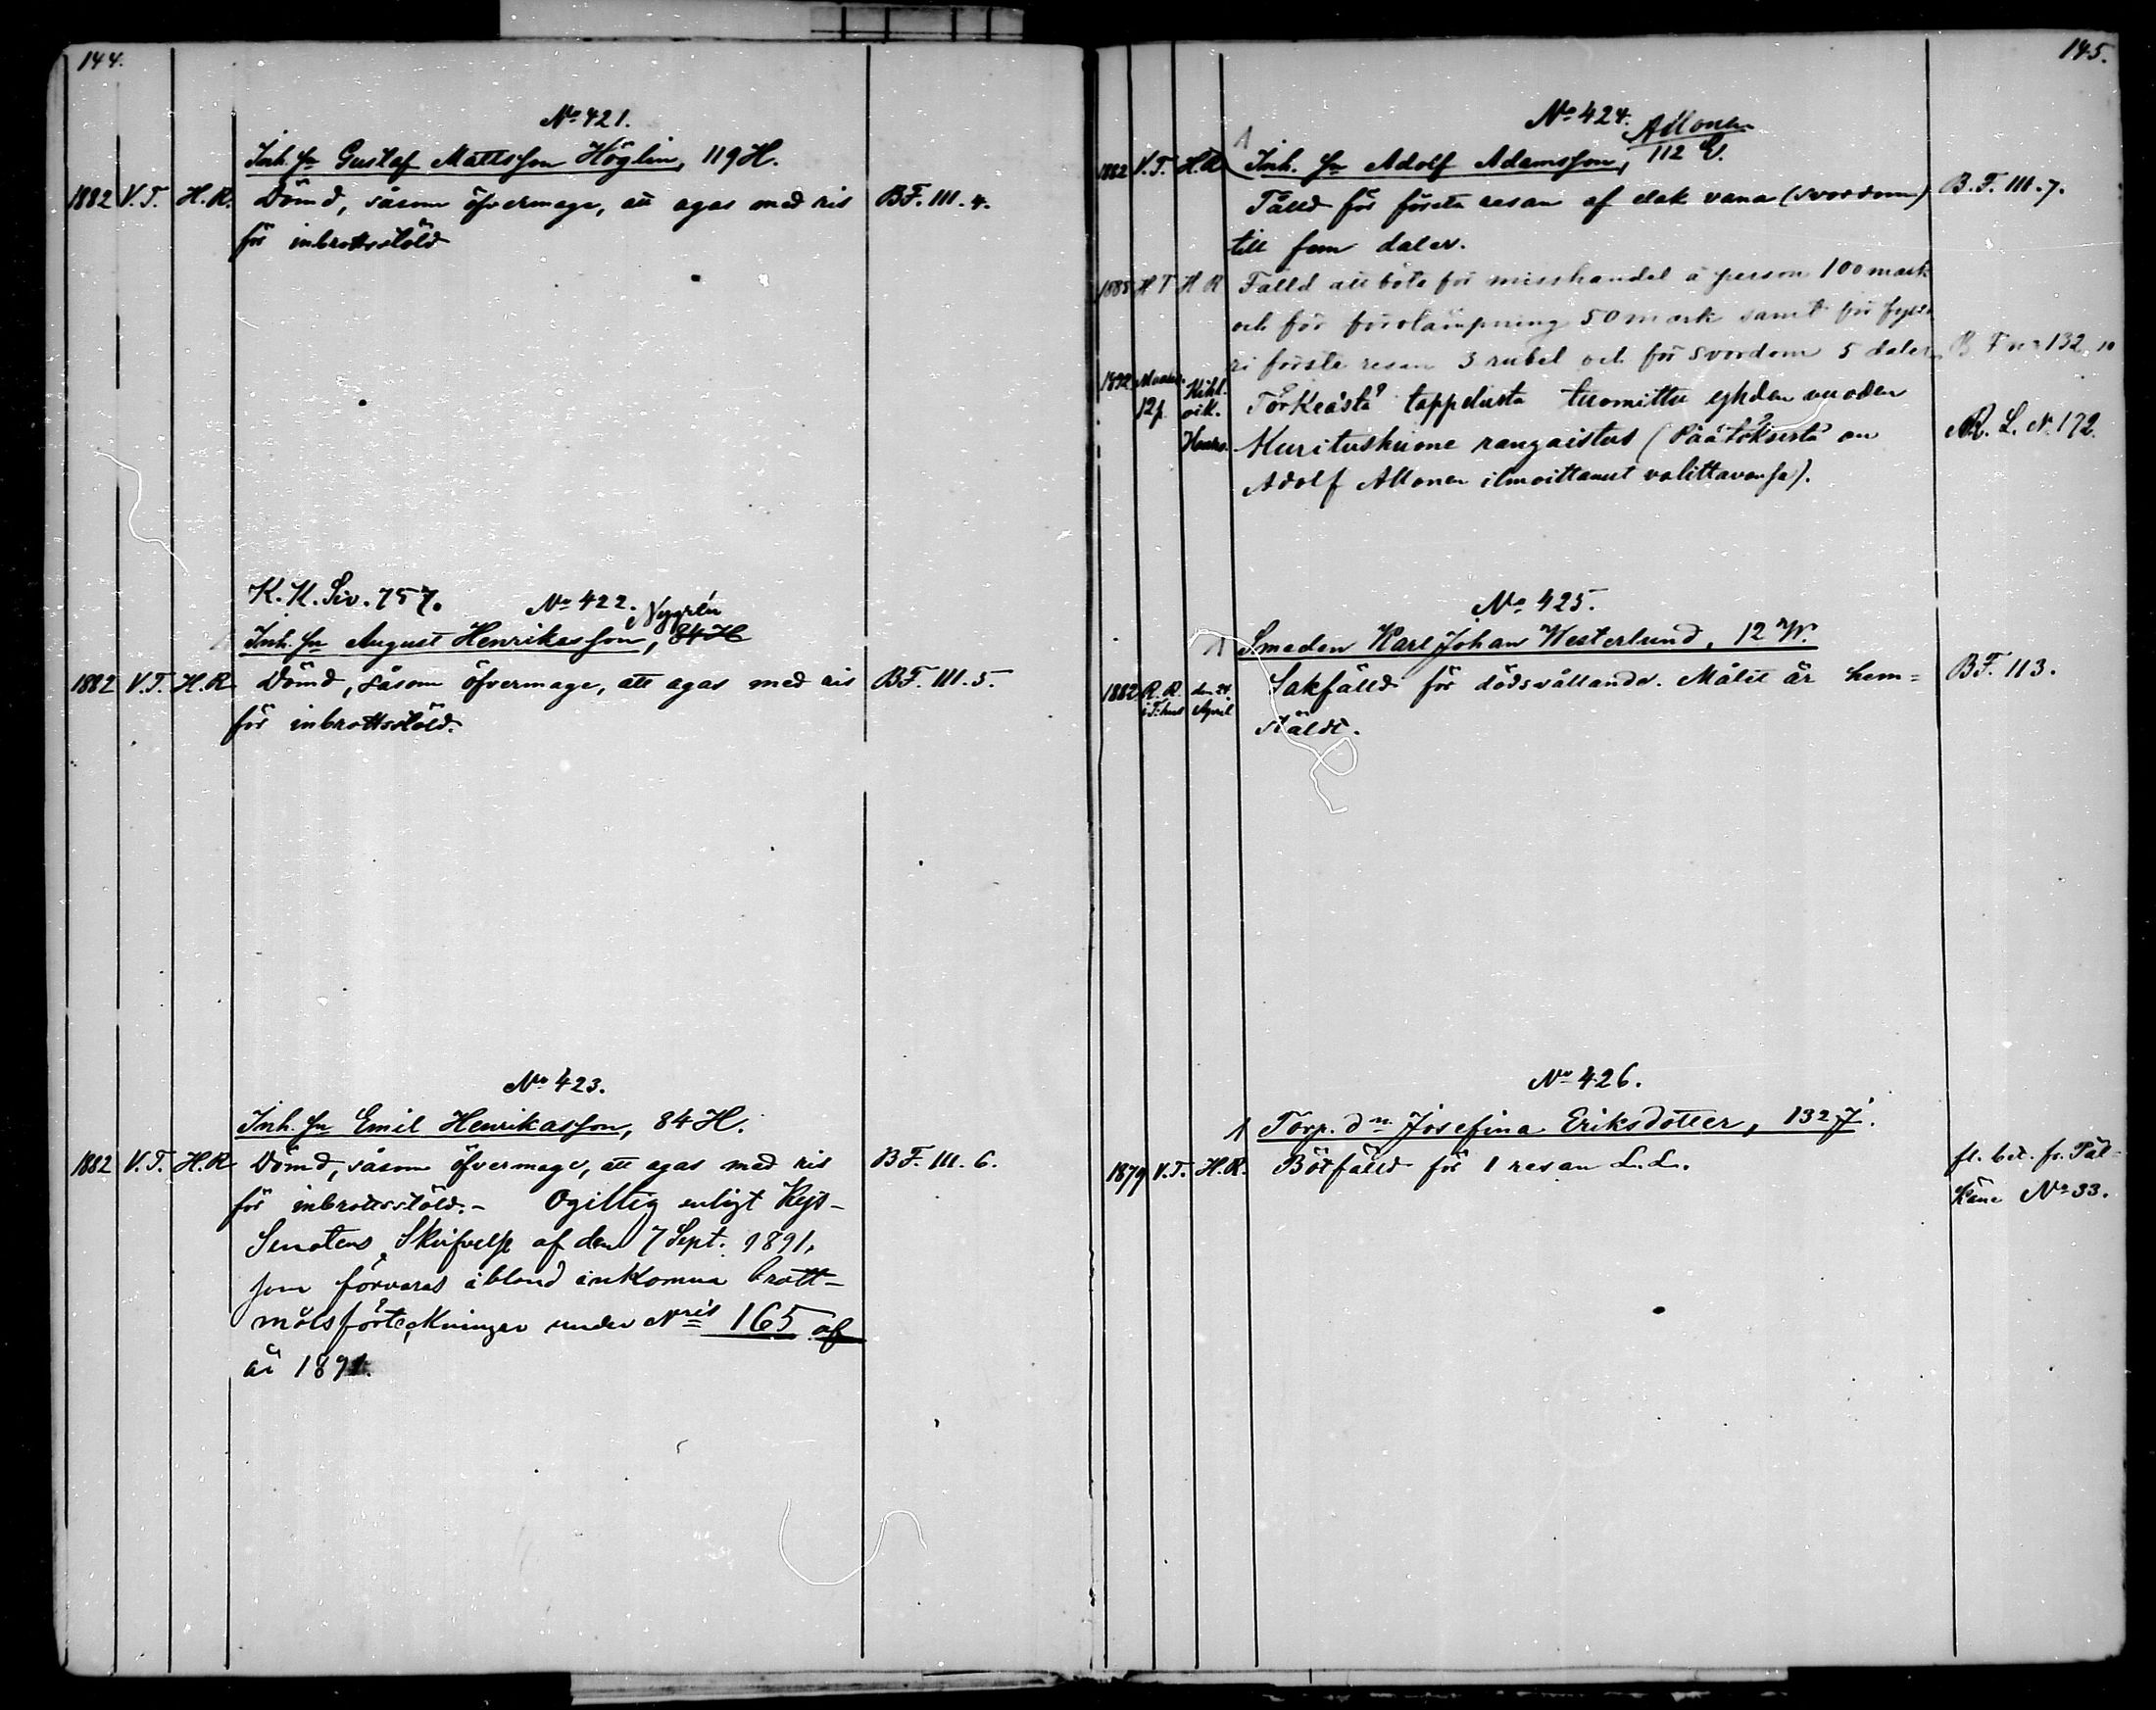 144.
No 421.
Inh. sn Gustaf Mattsson Höglin, 119 H.
1882 V.T. H.R. Dömd, såsom öfvermage, att agas med ris BF. 111. 4.
för inbrottsstöld
K. K. Siv. 757. No 422. Nygrén
Inh. sn August Henriksson, 84 H
1882 V.T. H.R Dömd, såsom öfvermage, att agas med ris BF. 111. 5.
för inbrottsstöld.
No 423.
Inh. sn Emil Henriksson, 84 H.
1882 V.T. H.R Dömd, såsom öfvermage, att agas med ris BF. 111. 6.
för inbrottsstöld. - Ogiltig enligt Kejs-
Senatens Skrifvelse af den 7 Sept. 1891,
som förvaras ibland inkomna brott-
målsförteckningar under Nris 165 af
år 1891.
145.
No 424. Allonen
1882 V.T. H.R Inh. sn Adolf Adamsson, 112 E.
Fälld för första resan af elak vana (svordom) B.F. 111. 7.
till fem daler.
1885 H T H R Fälld att böta för misshandel å person 100 mark
och för förolämpning 50 mark samt för fylle
ri första resan 3 rubel och för svordom 5 daler B F no 132, 10
1892 12 p. Kihl. oik. Törkeästä tappelusta tuomittu yhden vuoden
Kuritushuone rangaistus (Päätöksestä on R. L. N. 172.
Adolf Allonen ilmoittanut valittavansa).
No 425.
Smeden Karl Johan Westerlund, 12 W.
1882 R.R. i T:hus den 24 April Sakfälld för dödsvållande. Målet är hem= BF. 113.
stäldt.
No 426.
Torp. dn Josefina Eriksdotter, 132 J.
1879 V.T. H.R. Bötfälld för 1 resan L. L. fl. bet. fr. Päl-
käne No 33.